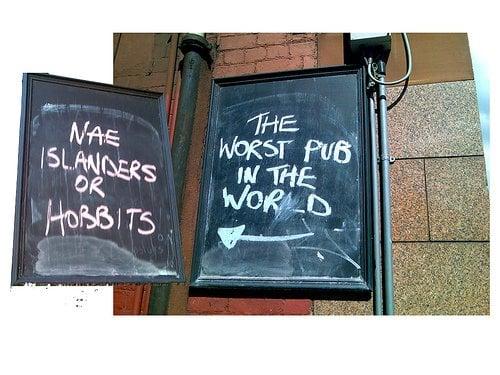 NAE
ISLANDERS
OR
HOBBITS
THE
WORST PUB
IN THE
WORLD